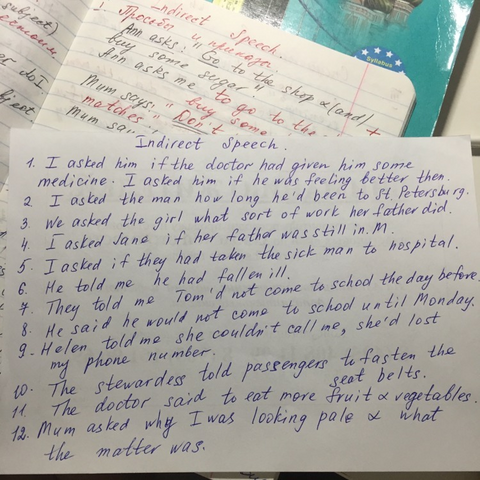 subject)
Indirect Speech.
Просьбы и приказы
Ann asks: Go to the shop & (and)
buy some sugar"
Ann asks me to go to the
Syllabus
do I
Mum says: "buy some
matches" Don't
Mum
Indirect Speech.
1. I asked him if the doctor had given him some
medicine. I asked him if he was feeling better then.
2 I asked the man how long he'd been to St. Petersburg.
3. We asked the girl what sort of work her father did.
4. I asked Jane if her father was still in M.
5. I asked if they had taken the sick man to hospital.
6. He told me he had fallen ill.
7. They told me Tom'd not come to school the day before.
8. He said he would not come to school until Monday.
9. Helen told me she couldn't call me, she'd lost
my phone number.
10. The stewardess told passengers to fasten the
seat belts.
11. The doctor said to eat more fruit & vegetables.
12. Mum asked why I was looking pale & what
the matter was.